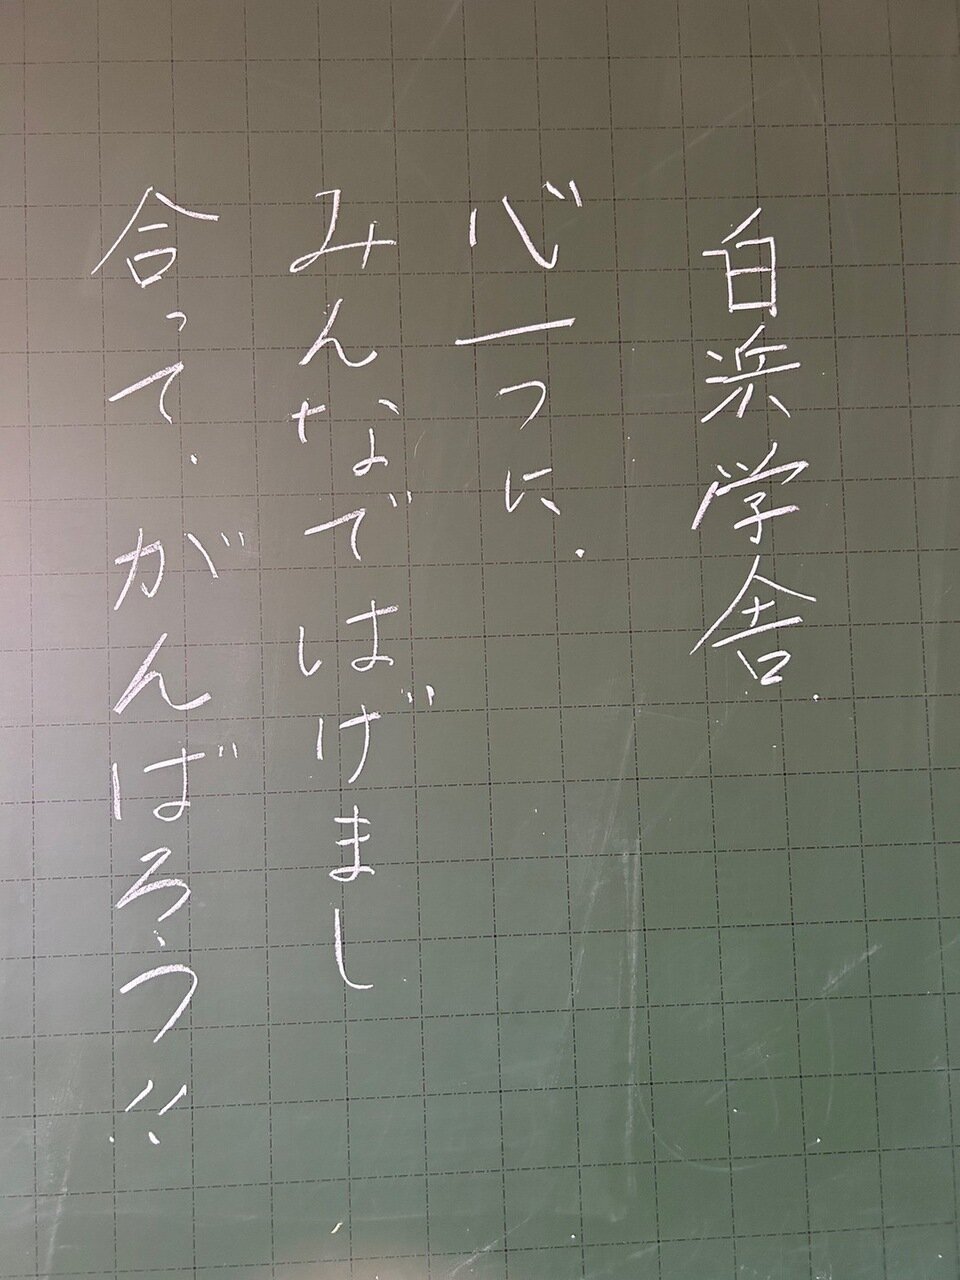 白浜学舎
心一つに.
みんなではげまし
合って.がんばろう!!